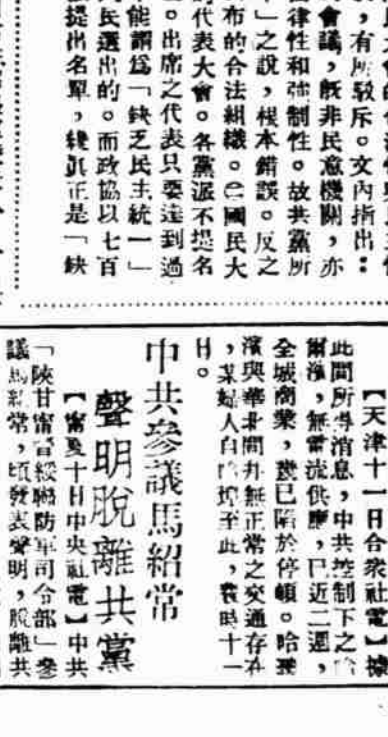 ，有所駁斥。文內指出：
會議，旣非民意機關，亦
律性和强制性。故共黨所
」之說，根本錯誤。反之
布的合法組織。㊁國民大
的代表大會。各黨派不提名
。出席之代表只要達到過
不能謂爲「缺乏民主統一」
民選出的。而政協以七百
提出名單，纔眞正是「缺
【天津十一日合衆社電】據
此間所得消息，中共控制下之哈
爾濱，無電流供應，已近二週，
全城商業，幾已陷於停頓。哈爾
濱與華北間幷無正常之交通存在
，某婦人白哈埠至此，費時十一
日。
中共參議馬紹常
聲明脫離共黨
【甯夏十日中央社電】中共
「陝甘甯晉綏聯防軍司令部」參
議馬紹常，頃發表聲明，脫離共